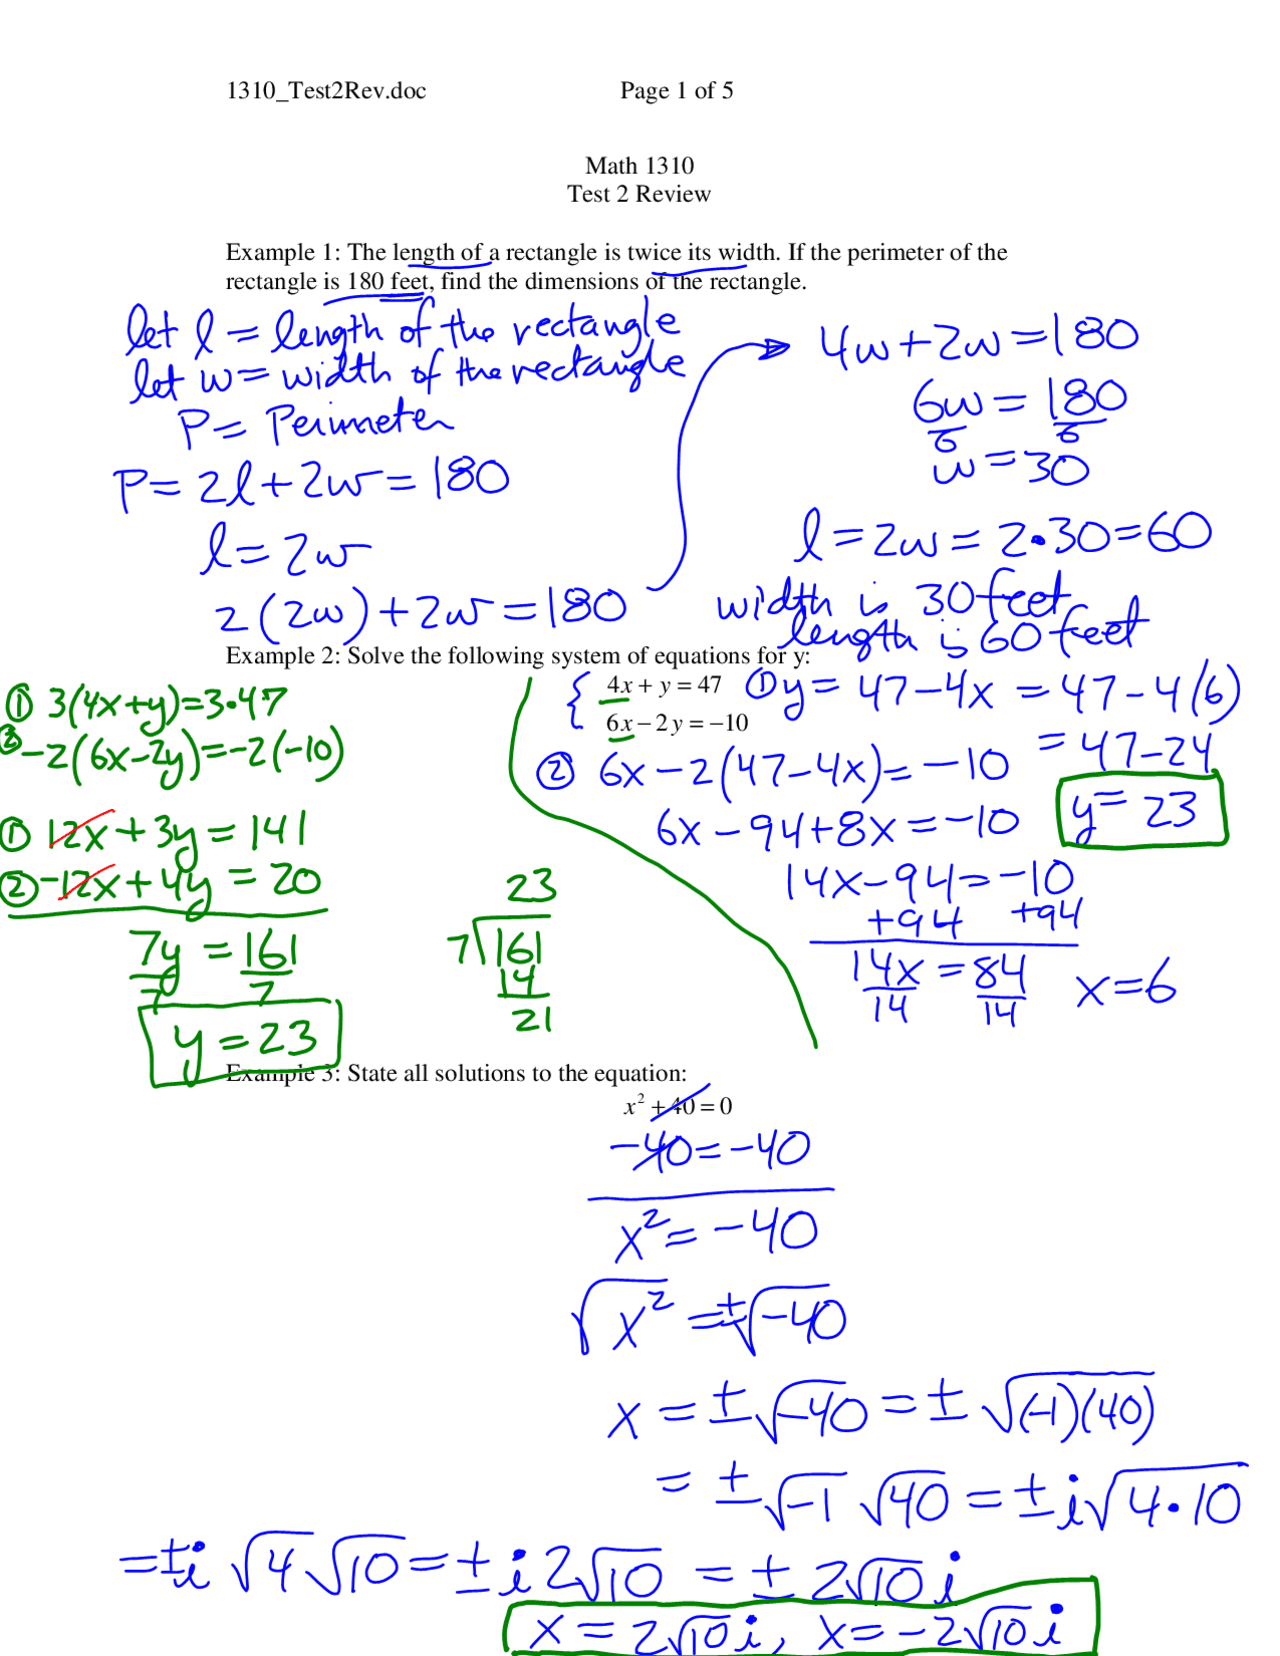 1310_Test2Rev.doc Page 1 of 5
Math 1310
Test 2 Review
Example 1: The length of a rectangle is twice its width. If the perimeter of the
rectangle is 180 feet, find the dimensions of the rectangle.
let l = length of the rectangle
let w = width of the rectangle
P = Perimeter
P = 2l + 2w = 180
l = 2w
2(2w) + 2w = 180
4w + 2w = 180
6w = 180
6 6
w = 30
l = 2w = 2•30 = 60
width is 30 feet
length is 60 feet
Example 2: Solve the following system of equations for y:
{ 4x + y = 47
6x − 2y = −10
① 3(4x+y) = 3•47
② −2(6x−2y) = −2(−10)
① 12x + 3y = 141
② −12x + 4y = 20
7y = 161
7 7
y = 23
23
7√161
14
21
① y = 47−4x = 47−4(6)
= 47−24
y = 23
② 6x − 2(47−4x) = −10
6x − 94 + 8x = −10
14x − 94 = −10
+94 +94
14x = 84
14 14
x = 6
Example 3: State all solutions to the equation:
x² + 40 = 0
−40 = −40
x² = −40
√x² = ±√−40
x = ±√−40 = ±√(−1)(40)
= ±√−1 √40 = ±i√4•10
= ±i √4 √10 = ±i 2√10 = ± 2√10 i
x = 2√10 i, x = −2√10 i